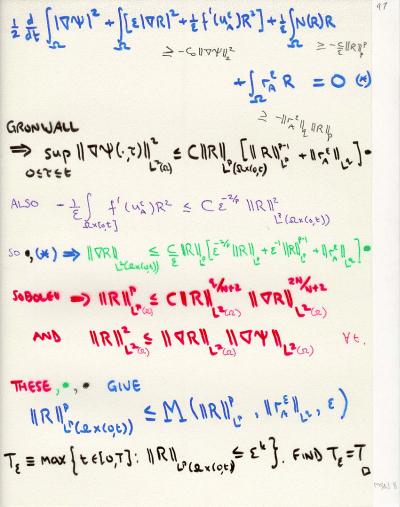 97
1/2 d/dt ∫_Ω |∇Ψ|² + ∫_Ω [ε|∇R|² + 1/ε f'(u_A^ε)R²] + 1/ε ∫_Ω N(R)R
≥ -C₀||∇Ψ||²_{L²} ≥ -C/ε ||R||^p_{L^p}
+ ∫_Ω r_A^ε R = 0 (*)
≥ -||r_A^ε||_{L^q} ||R||_{L^p}
GRONWALL
⇒ sup_{0≤τ≤t} ||∇Ψ(·,τ)||²_{L²(Ω)} ≤ C||R||_{L^p(Ω×(0,t))} [||R||^{p-1}_{L^p} + ||r_A^ε||_{L^q}] •
ALSO -1/ε ∫_{Ω×[0,t]} f'(u_A^ε)R² ≤ C ε^{-2/p} ||R||²_{L^p(Ω×(0,t))}
SO •, (*) ⇒ ||∇R||_{L²(Ω×(0,t))} ≤ C/ε ||R||_{L^p} [ε^{-2/p} ||R||_{L^p} + ε^{-1} ||R||^{p-1}_{L^p} + ||r_A^ε||_{L^q}] •
SOBOLEV ⇒ ||R||^p_{L^p(Ω)} ≤ C||R||^{4/N+2}_{L²(Ω)} ||∇R||^{2N/N+2}_{L²(Ω)}
AND ||R||²_{L²(Ω)} ≤ ||∇R||_{L²(Ω)} ||∇Ψ||_{L²(Ω)} ∀t.
THESE, •, • GIVE
||R||^p_{L^p(Ω×(0,t))} ≤ M(||R||^p_{L^p}, ||r_A^ε||_{L^q}, ε)
T_ε ≡ max{t∈[0,T]: ||R||_{L^p(Ω×(0,t))} ≤ ε^k}. FIND T_ε = T □